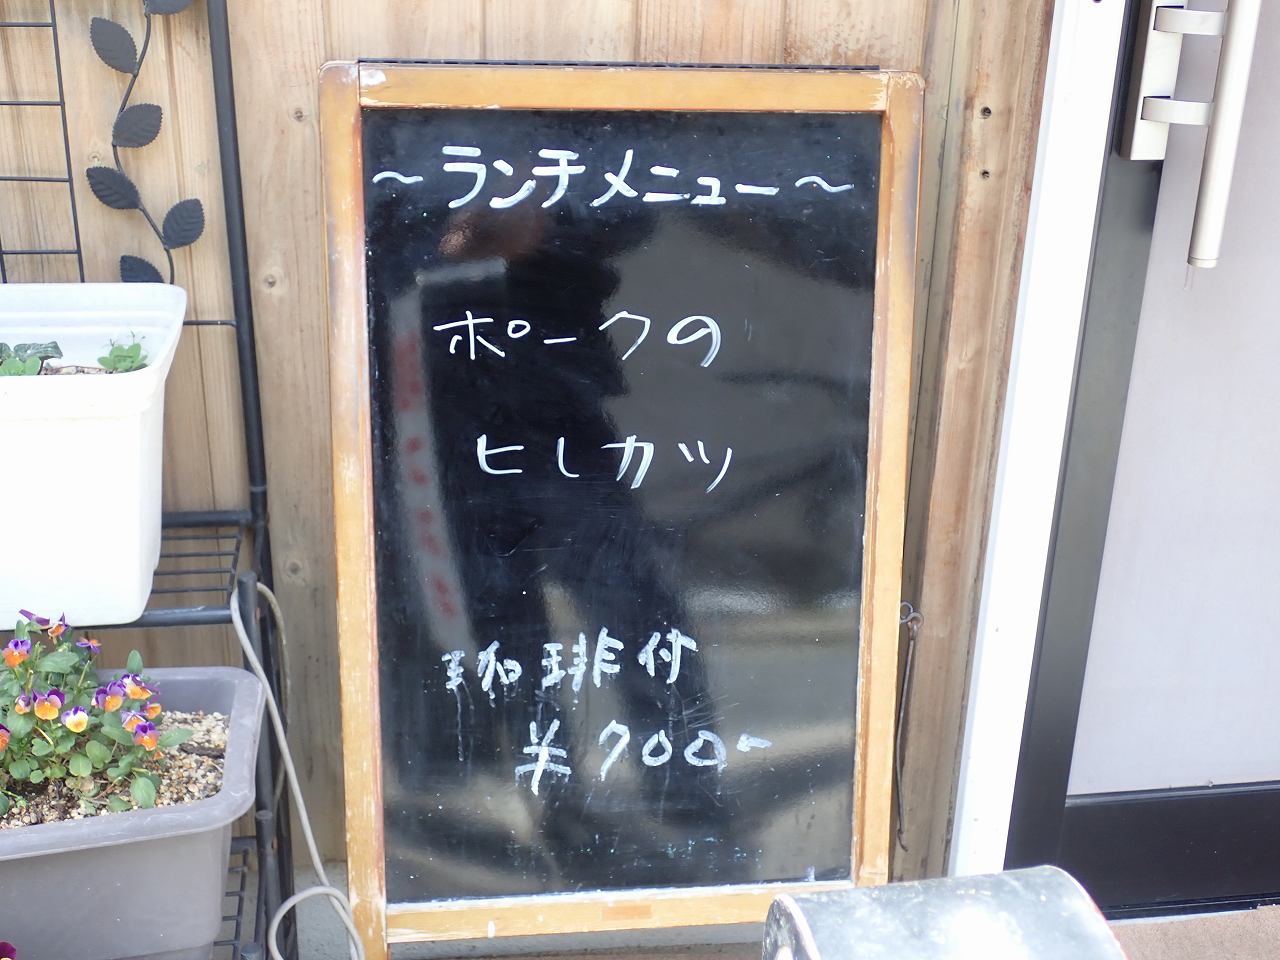 ～ランチメニュー～
ポークの
ヒレカツ
珈琲付
¥700-